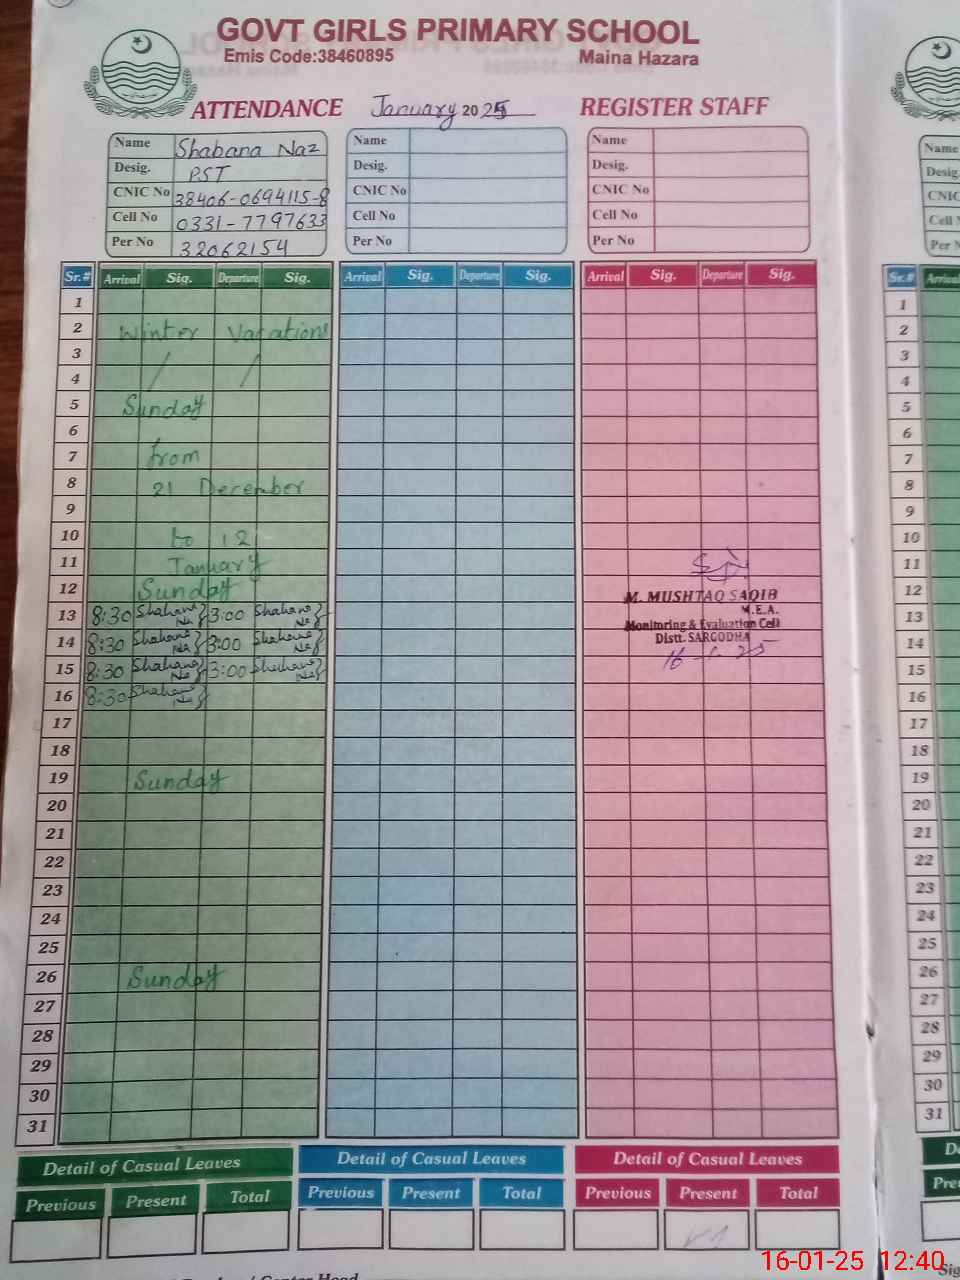 GOVT GIRLS PRIMARY SCHOOL
Emis Code:38460895 Maina Hazara
ATTENDANCE January 2025 REGISTER STAFF
Name Shabana Naz Name Name Name
Desig. PST Desig. Desig. Desig.
CNIC No 38406-0694115-8 CNIC No CNIC No CNIC
Cell No 0331-7797633 Cell No Cell No Cell
Per No 32062154 Per No Per No Per N
Sr.# Arrival Sig. Departure Sig. Arrival Sig. Departure Sig. Arrival Sig. Departure Sig. Sr.# Arrival
1 1
2 Winter Vacations 2
3 3
4 4
5 Sunday 5
6 6
7 from 7
8 21 December 8
9 9
10 to 12 10
11 January 11
12 Sunday M. MUSHTAQ SAQIB 12
13 8:30 Shabana Naz 3:00 Shabana Naz M.E.A. 13
Monitoring & Evaluation Cell
14 8:30 Shabana Naz 3:00 Shabana Naz Distt. SARGODHA 14
15 8:30 Shabana Naz 3:00 Shabana Naz 16-1-25 15
16 8:30 Shabana Naz 16
17 17
18 18
19 Sunday 19
20 20
21 21
22 22
23 23
24 24
25 25
26 Sunday 26
27 27
28 28
29 29
30 30
31 31
Detail of Casual Leaves Detail of Casual Leaves Detail of Casual Leaves
Previous Present Total Previous Present Total Previous Present Total Pre
16-01-25 12:40
Sig